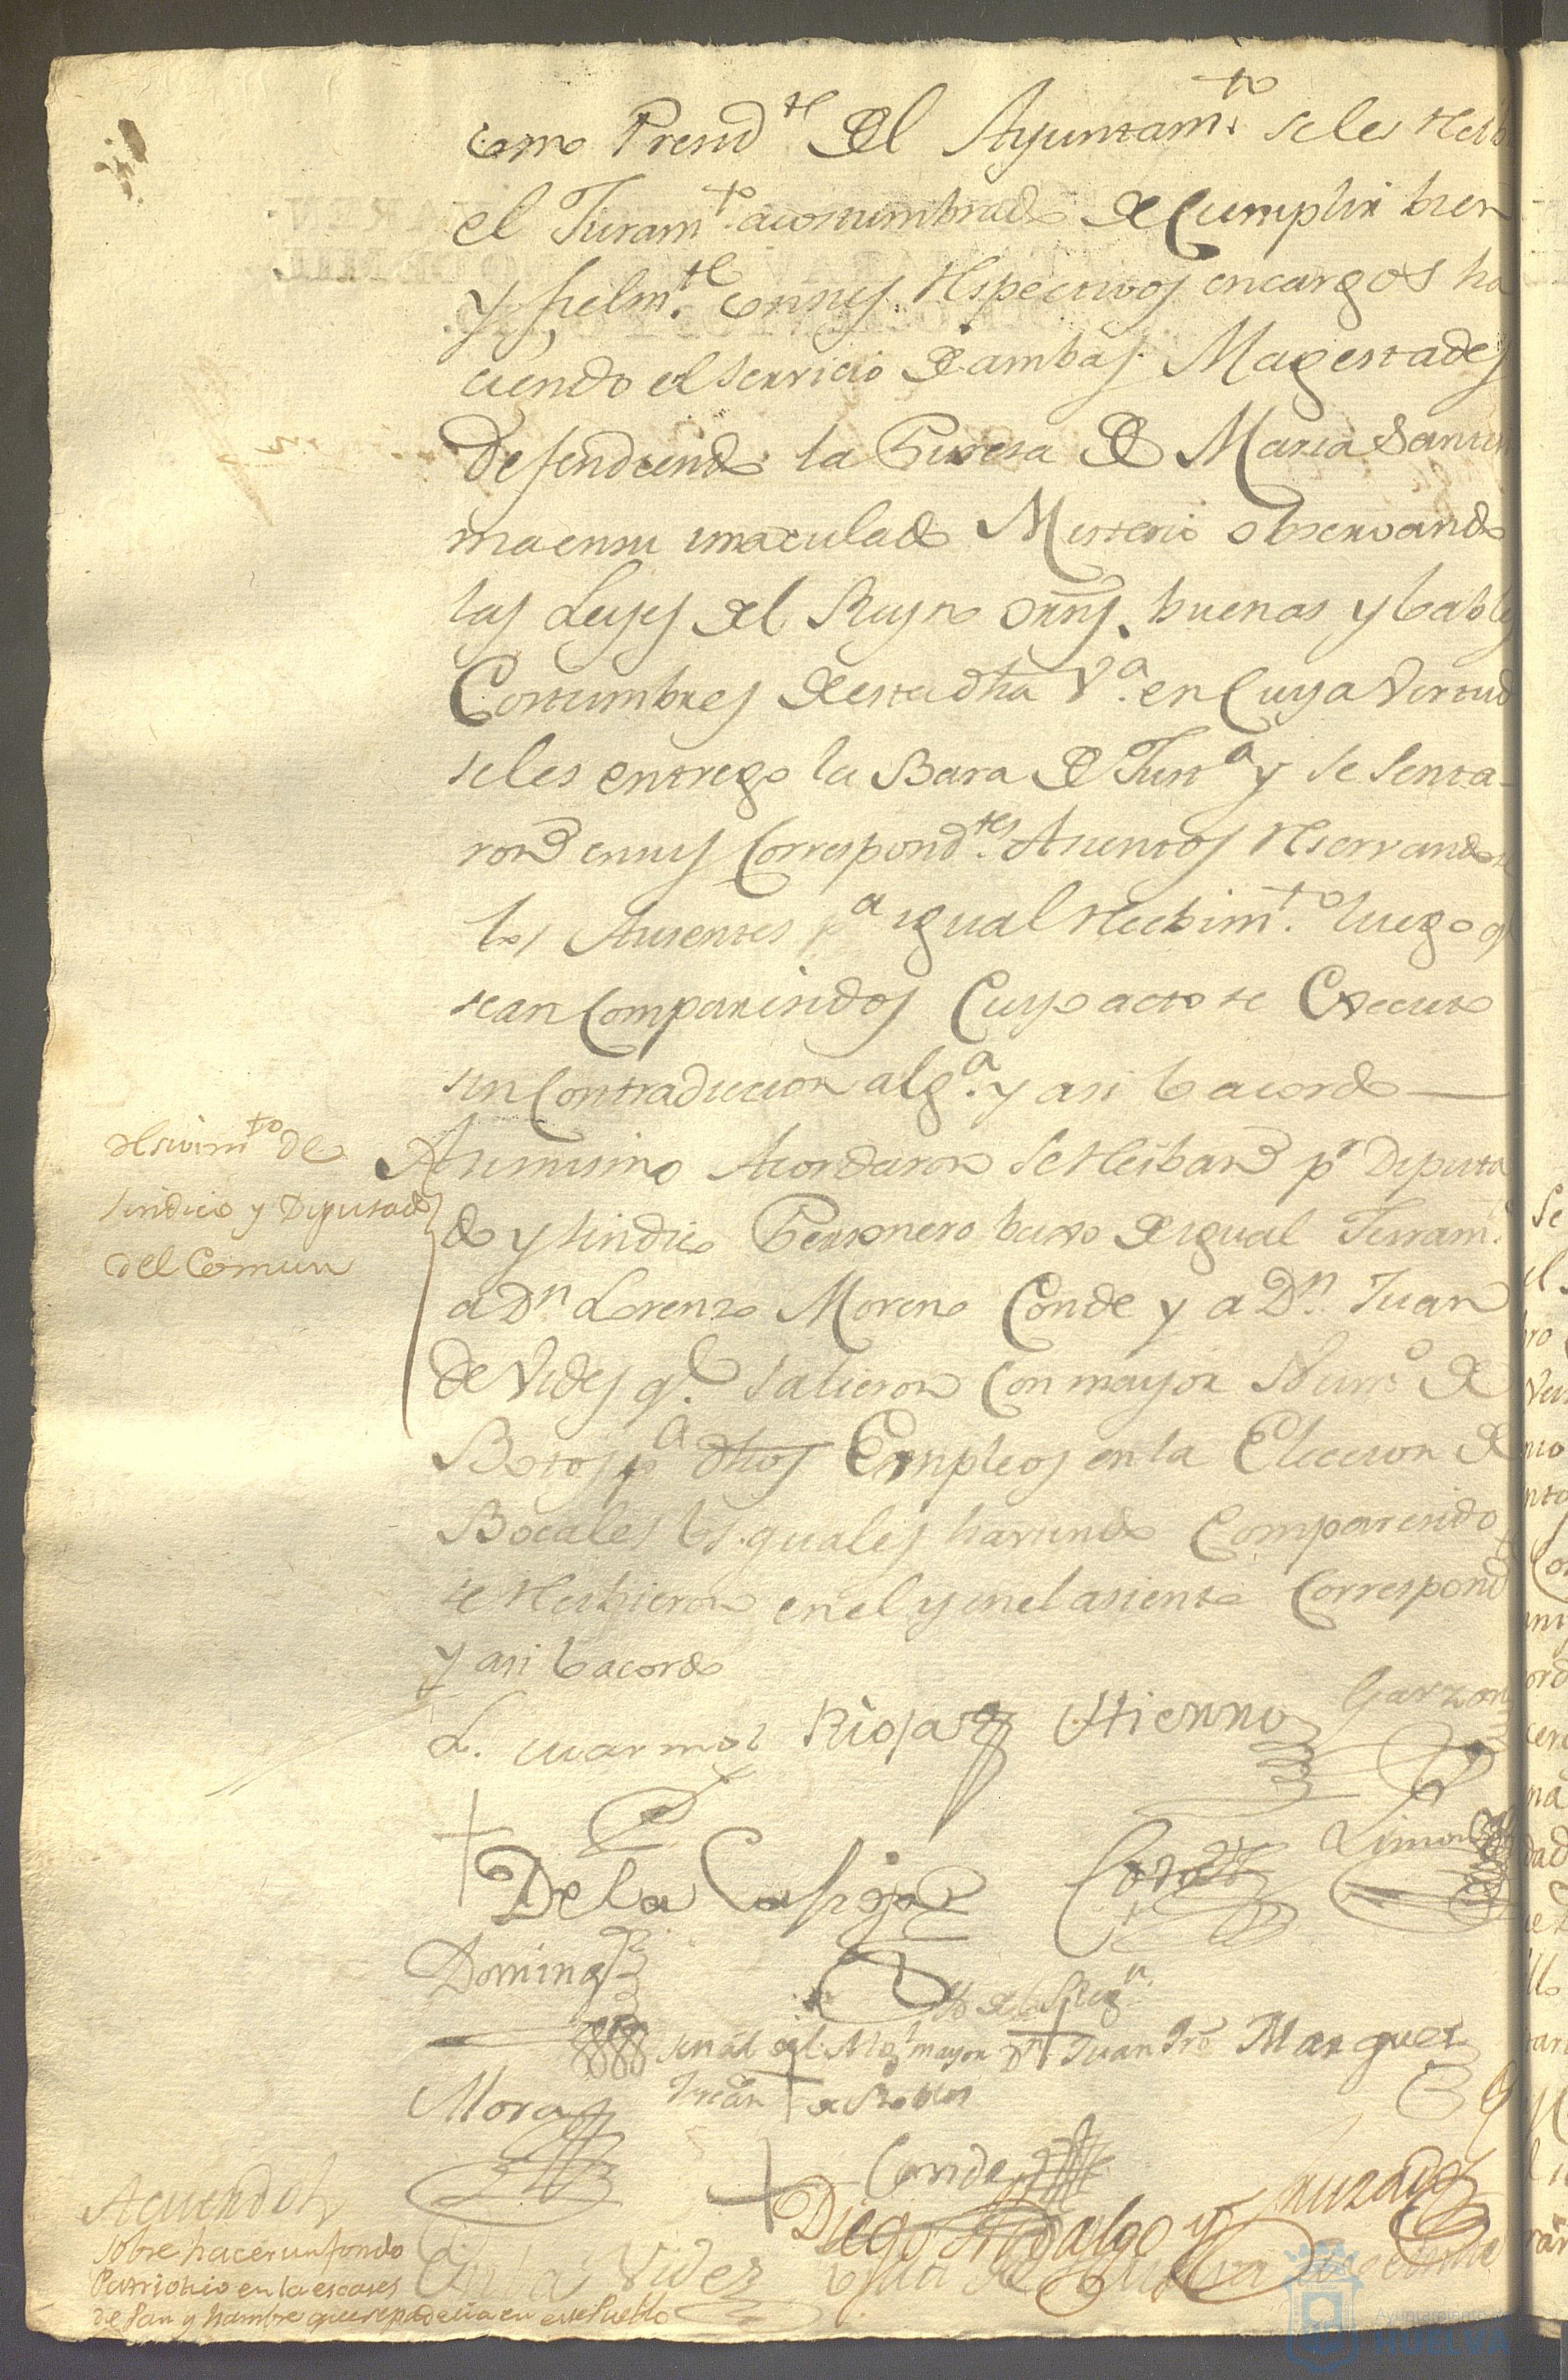 como Presid.te del Ayuntam.to se les recib
el Juram.to acostumbrado de Cumplir bien
y fielm.te con sus respectivos encargos ha
ciendo el servicio de ambas Magestades
Defendiendo la Puresa de Maria Santisi
ma en su inmaculado Misterio observando
las Leyes del Reyno ornz. buenas y loables
Costumbres de esta dha V.a en Cuya Virtud
se les entrego la Bara de Just.a y se senta-
ron en sus Correspond.tes Asientos reservandose
los Ausentes p.a igual recibim.to luego q.e
sean Comparesidos Cuyo acto se Executo
sin Contradiccion alg.a y asi lo acordo
Resivim.to de
Sindico y Diputado
del Comun
Asimismo Acordaron se reciban p.r Diputa
do y Sindico Personero baxo de igual Juram.to
a D.n Lorenzo Moreno Conde y a D.n Juan
de Vides q.e salieron Con mayor Num.o de
Botos p.a dhos Empleos en la Eleccion de
Bocales los quales haviendo Comparesido
se recibieron en el y en el asiento Correspond
y asi lo acordo
L. Marmol Rioja Hierro Garzon
De la Corte Limon
Doming
señal del Alg.l mayor D.n Juan Fro Marquez
Mora
Conde
Diego Hidalgo y Quizado
Videz
Acuerdo
sobre hacer un fondo
Patriotico en la escases
de Pan y hambre que se padecia en este Pueblo
Ayuntamiento
HUELVA